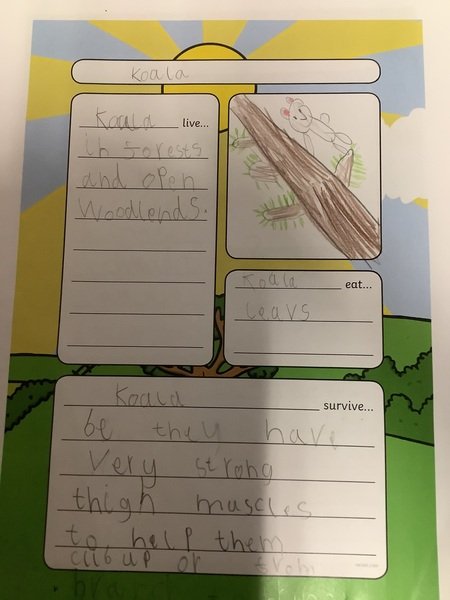 Koala
Koala live...
in forests
and open
woodlends.
Koala eat...
leavs
Koala survive...
be they have
very strong
thigh muscles
to help them
up or from